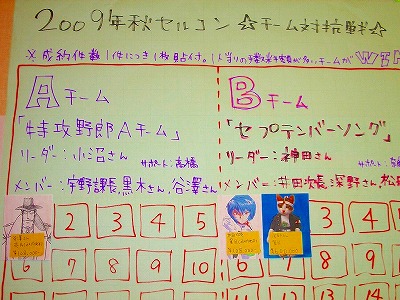 2009年秋セルコン ☆チーム対抗戦☆
※成約件数1件につき1枚貼付。1人当りの 多いチームが WIN
Aチーム
「特攻野郎Aチーム」
リーダー：小沼さん
サポート：高橋
メンバー：宇野課長、黒木さん、谷澤さん
2 3 4 5
6 7 8 9 10
Bチーム
「セプテンバーソング」
リーダー：神田さん
サポート：
メンバー：井田次長、深野さん、松
3 4
6 7 8 9